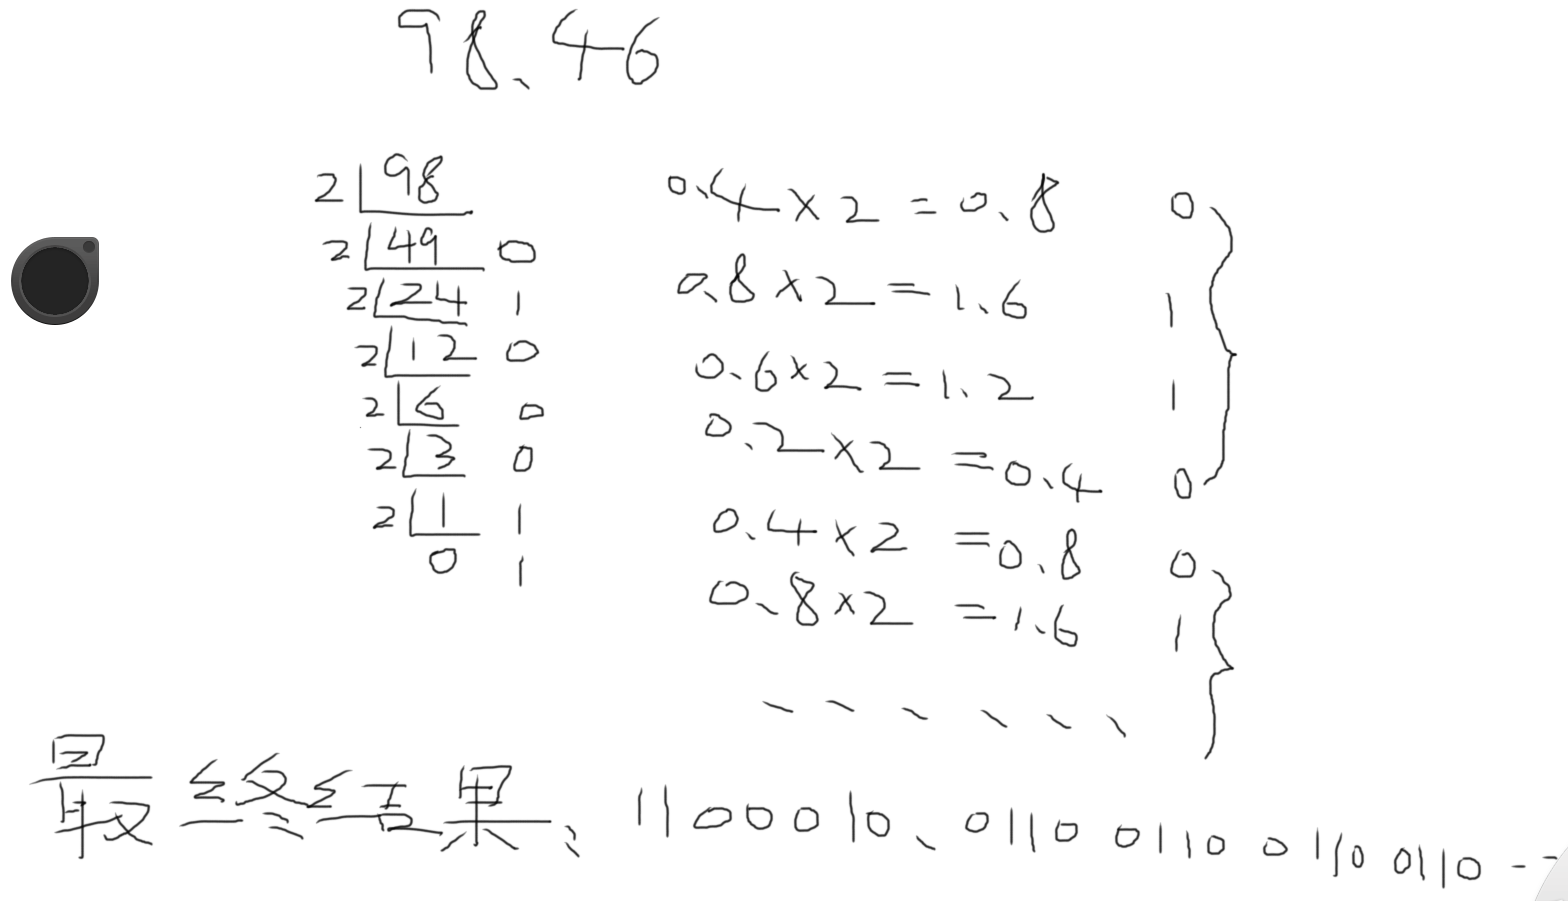 98.46
2 98
2 49 0
2 24 1
2 12 0
2 6 0
2 3 0
2 1 1
0 1
0.4×2=0.8 0
0.8×2=1.6 1
0.6×2=1.2 1
0.2×2=0.4 0
0.4×2=0.8 0
0.8×2=1.6 1
、、、、、、
最终结果: 1100010.0110 0110 0110 0110--